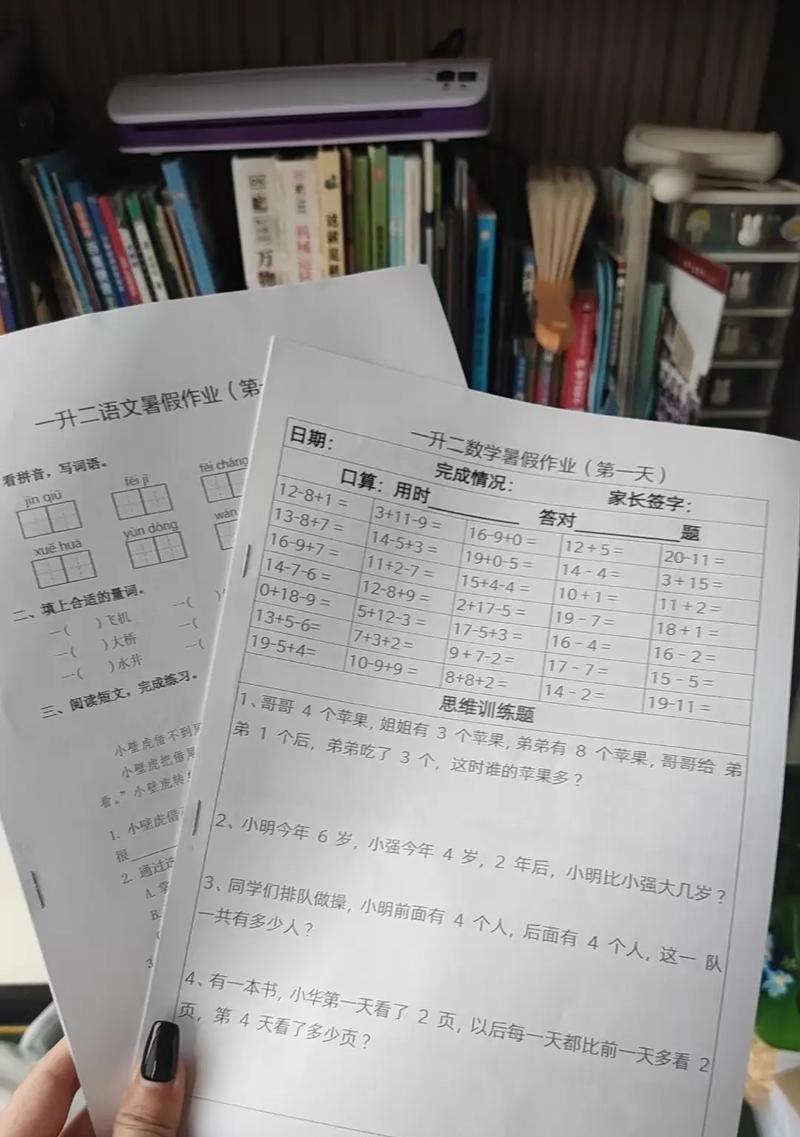 一升二语文暑假作业（第
看拼音，写词语。
jīn qiū
fēi jī
fēi cháng
xuě huā
yùn dòng
wán
二、填上合适的量词。
一（ ）飞机 一（
一（ ）大桥 一（
一（ ）水井 一（
三、阅读短文，完成练习。
小壁虎借不到尾
小壁虎把借尾
看。”小壁虎转
1. 小壁虎借
很
2. 通过
A. 掌
B.
3
一升二数学暑假作业（第一天）
日期： 完成情况： 家长签字：
口算：用时 答对 题
12-8+1= 3+11-9= 16-9+0= 12+5= 20-11=
13-8+7= 14-5+3= 19+0-5= 14-4= 3+15=
16-9+7= 11+2-7= 15+4-4= 10+1= 11+2=
14-7-6= 12-8+9= 2+17-5= 19-7= 18+1=
0+18-9= 5+12-3= 17-5+3= 16-4= 16-2=
13+5-6= 7+3+2= 9+7-2= 17-7= 15-5=
19-5+4= 10-9+9= 8+8+2= 14-2= 19-11=
思维训练题
1、哥哥 4 个苹果，姐姐有 3 个苹果，弟弟有 8 个苹果，哥哥给 弟
弟 1 个后，弟弟吃了 3 个，这时谁的苹果多？
2、小明今年 6 岁，小强今年 4 岁，2 年后，小明比小强大几岁？
3、同学们排队做操，小明前面有 4 个人，后面有 4 个人，这一 队
一共有多少人？
4、有一本书，小华第一天看了 2 页，以后每一天都比前一天多看 2
页，第 4 天看了多少页？
DK
万物